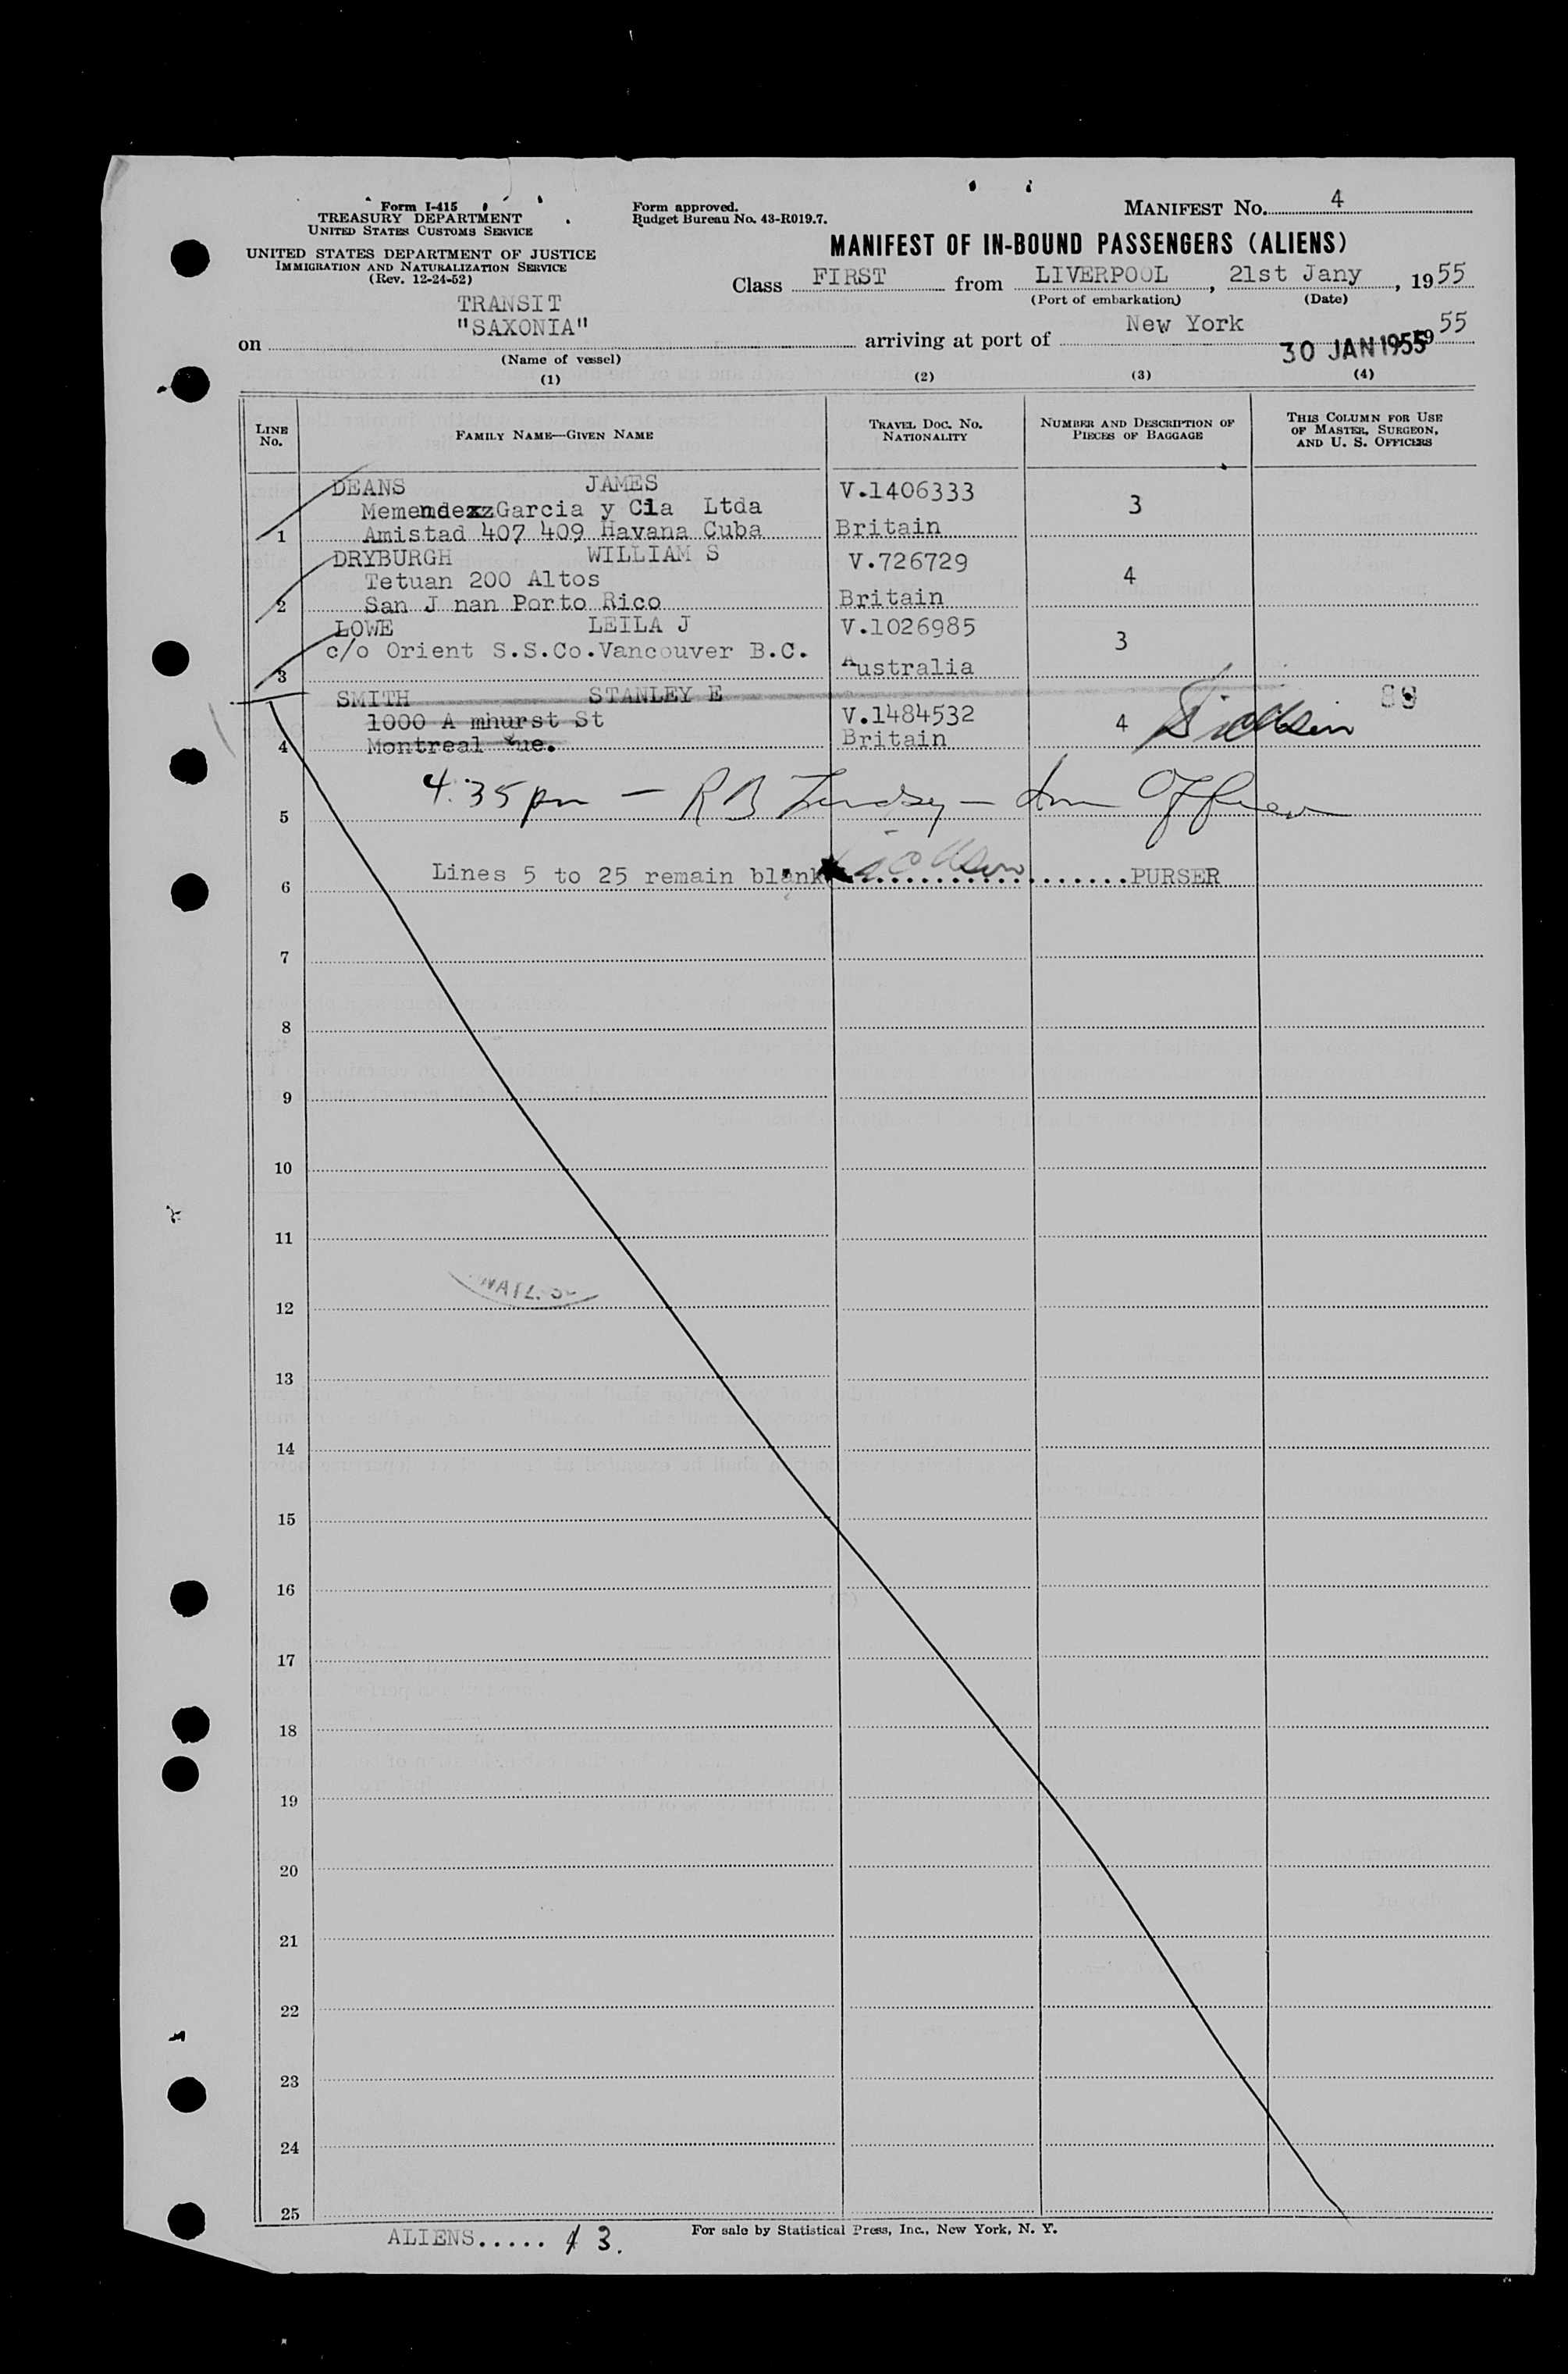 Form I-415
TREASURY DEPARTMENT
UNITED STATES CUSTOMS SERVICE
UNITED STATES DEPARTMENT OF JUSTICE
IMMIGRATION AND NATURALIZATION SERVICE
(Rev. 12-24-52)
Form approved.
Budget Bureau No. 43-R019.7.
MANIFEST NO. 4
MANIFEST OF IN-BOUND PASSENGERS (ALIENS)
Class FIRST from LIVERPOOL, 21st Jany, 1955
(Port of embarkation) (Date)
TRANSIT
on "SAXONIA" arriving at port of New York 30 JAN 1955 1955
(Name of vessel)
(1) (2) (3) (4)
LINE No. FAMILY NAME—GIVEN NAME TRAVEL DOC. NO. NATIONALITY NUMBER AND DESCRIPTION OF PIECES OF BAGGAGE THIS COLUMN FOR USE OF MASTER, SURGEON, AND U. S. OFFICERS
DEANS JAMES V.1406333 3
Garcia y Cia Ltda
1 Amistad 407 409 Havana Cuba Britain
DRYBURGH WILLIAM S V.726729 4
Tetuan 200 Altos
2 San J nan Porto Rico Britain
LOWE LEILA J V.1026985 3
c/o Orient S.S.Co.Vancouver B.C.
3 Australia
SMITH STANLEY E
1000 A mhurst St V.1484532 4
4 Montreal Que. Britain
5 4.35 pm — R B Lindsey — Imm Officer
6 Lines 5 to 25 remain blank PURSER
7
8
9
10
11
12
13
14
15
16
17
18
19
20
21
22
23
24
25
ALIENS..... 4 3.
For sale by Statistical Press, Inc., New York, N. Y.